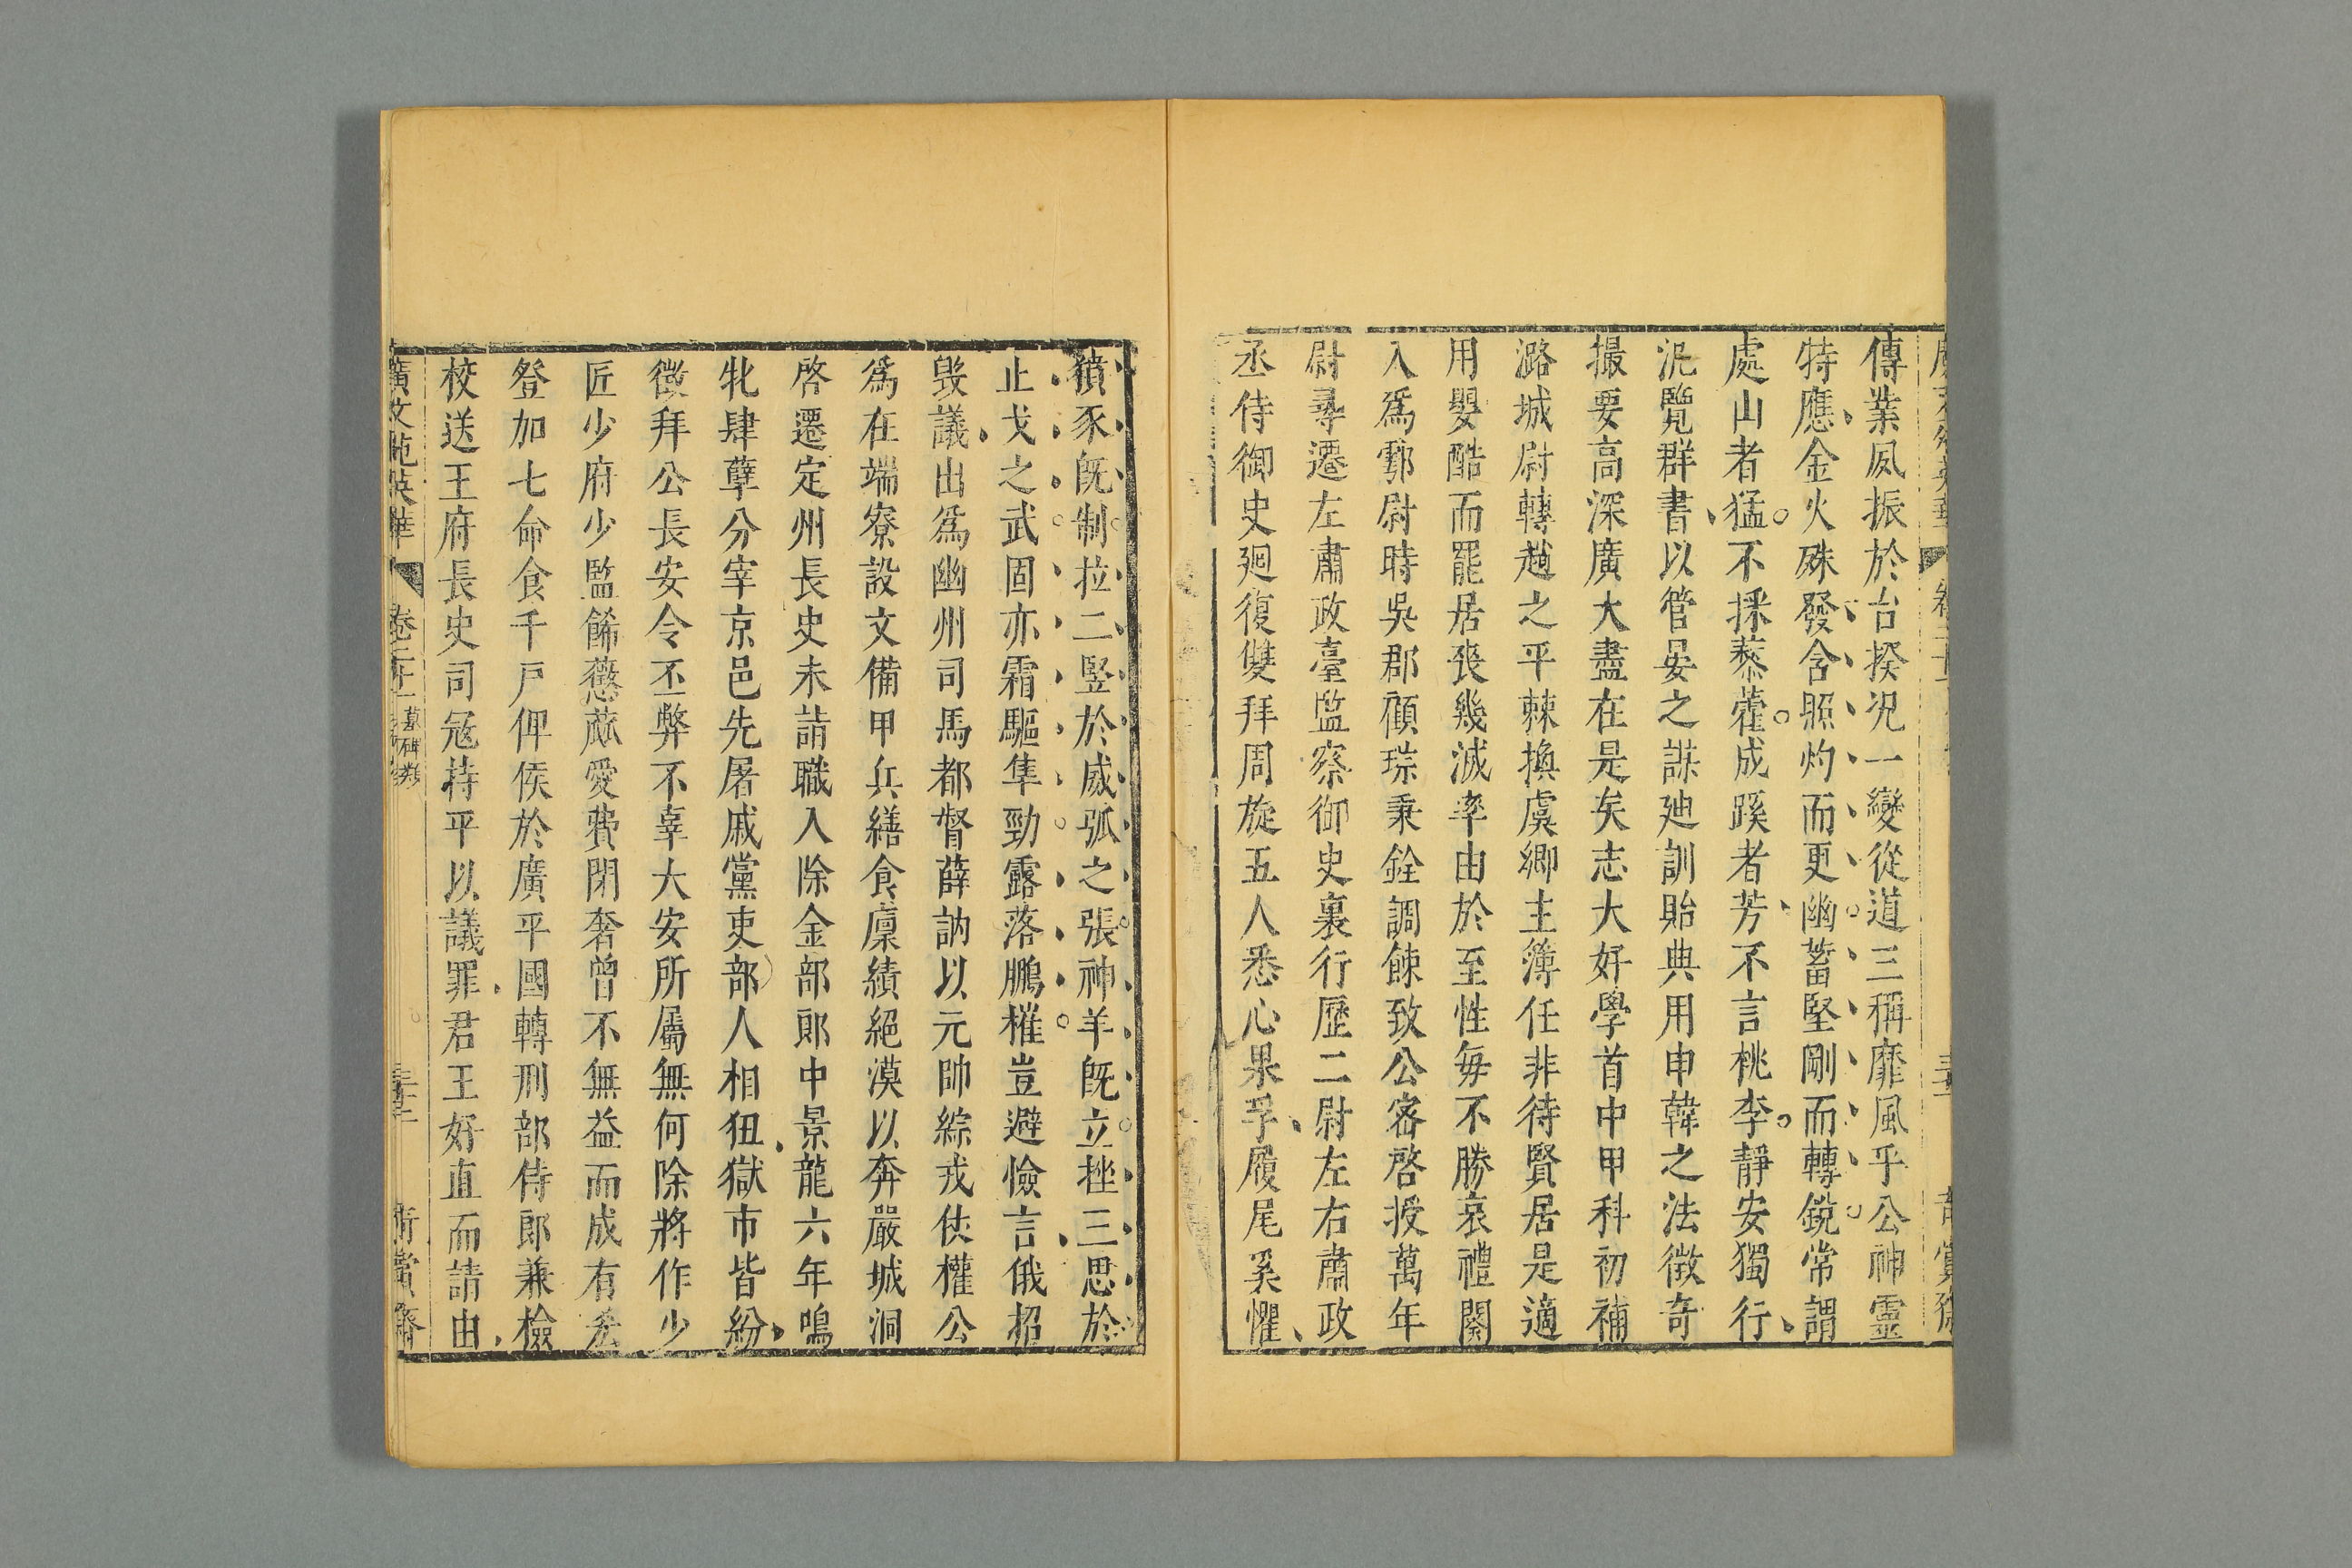 傳業夙振於台揆況一變從道三稱靡風乎公神靈
特應金火殊發含照灼而更幽蓄堅剛而轉銳常謂
處山者猛不採藜藿成蹊者芳不言桃李靜安獨行
汎覽群書以管晏之謀廸訓貽典用申韓之法徴奇
撮要高深廣大盡在是矣志大好學首中甲科初補
潞城尉轉趙之平棘換虞卿主簿任非待賢居是適
用嬰酷而罷居喪幾滅率由於至性每不勝哀禮闋
入爲鄠尉時吳郡顧琮秉銓調餗致公密啓授萬年
尉尋遷左肅政臺監察御史裏行歷二尉左右肅政
丞侍御史廻復雙拜周旋五人悉心果孚履尾奚懼
豶豕旣制拉二竪於威弧之張神羊旣立挫三思於
止戈之武固亦霜驅隼勁露落鵬權豈避憸言俄招
毁議出爲幽州司馬都督薛訥以元帥綜戎仗權公
爲在端寮設文備甲兵繕食廪績絕漠以奔嚴城洞
啓遷定州長史未詣職入除金部郎中景龍六年鳴
牝肆孽分宰京邑先屠戚黨吏部人相狃獄市皆紛
徴拜公長安令丕弊不辜大安所屬無何除將作少
匠少府少監餙蠱蔽愛費閉奢曾不無益而成有
登加七命食千戸俾侯於廣平國轉刑部侍郎兼檢
校送王府長史司冦持平以議罪君王好直而請由
廣文苑英華 卷二十一 墓碑類 三十二 奇賞齋